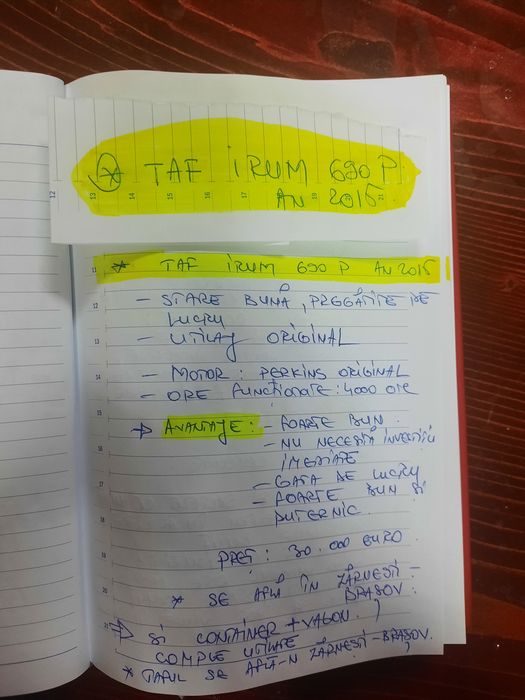 * TAF IRUM 690 P
AN 2015
* TAF IRUM 690 P AN 2015
- STARE BUNĂ, PREGĂTITE DE
LUCRU
- UTILAJ ORIGINAL
- MOTOR: PERKINS ORIGINAL
- ORE FUNCTIONATE: 4000 ORE
→ AVANTAJE: - FOARTE BUN.
- NU NECESITĂ INVESTIȚII
IMEDIATE
- GATA DE LUCRU
- FOARTE BUN SI
PUTERNIC.
PREȚ: 30.000 EURO
* SE AFLĂ ÎN ZĂRNEȘTI -
BRASOV.
⇒ SI CONTAINER + VAGON
COMPLE UTILATE
* TAFUL SE AFLĂ-N ZĂRNEȘTI-BRAȘOV.
12 13 14 15 16 17 19 21
11
12
13
14
15
16
17
18
19
20
21